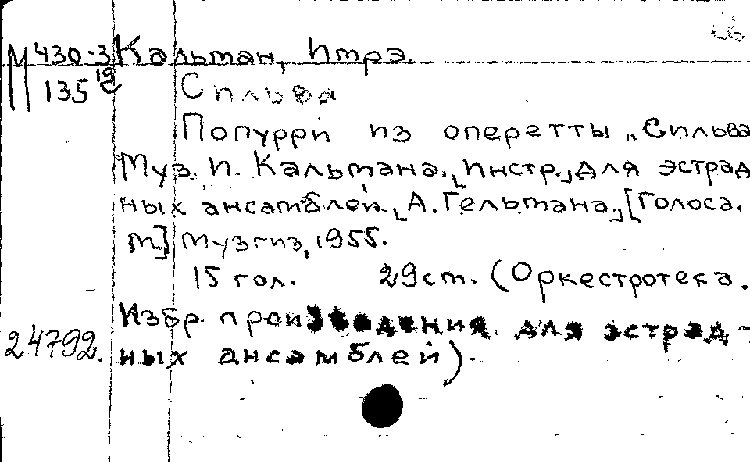 М 430-3 Кальман, Имрэ.
135 19 Сильва
Попурри из оперетты "Сильва
Муз. И. Кальмана. [Инстр.] для эстрад
ных ансамблей [А. Гельмана.] [Голоса.
М] Музгиз, 1955.
15 гол. 29 см. (Оркестротека.
Избр. произведения для эстрад-
24792. ных ансамблей).